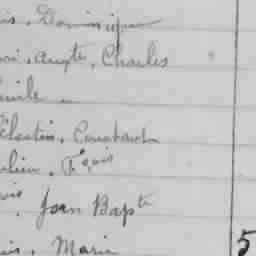 is, Dominique
ri, Augte, Charles
mile
Célestin, Constant
ulien, Louis
Jean Bapte
is, Marie 5